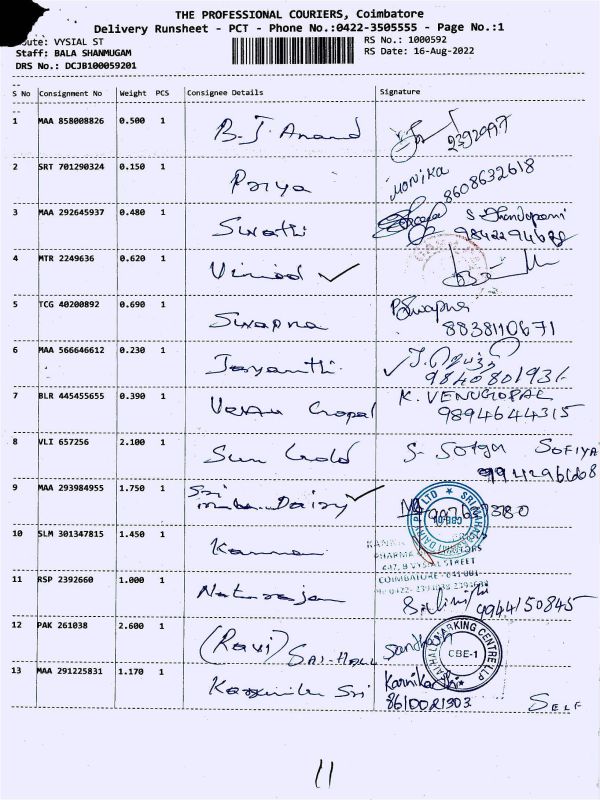 THE PROFESSIONAL COURIERS, Coimbatore
Delivery Runsheet - PCT - Phone No.:0422-3505555 - Page No.:1
Route: VYSIAL ST
RS No.: 1000592
Staff: BALA SHANMUGAM
RS Date: 16-Aug-2022
DRS No.: DCJB100059201
S No Consignment No Weight PCS Consignee Details Signature
1 MAA 858008826 0.500 1 B.J. Anand 2392097
2 SRT 701290324 0.150 1 Priya MONIKA
8608632618
3 MAA 292645937 0.480 1 Swathi
4 MTR 2249636 0.620 1 Vinod ✓
5 TCG 40200892 0.690 1 Swapna P. Swapna
8838110671
6 MAA 566646612 0.230 1 Jayanthi
✓ 984080193
7 BLR 445455655 0.390 1 Venu Gopal K. VENUGOPAL
9894644315
8 VLI 657256 2.100 1 Sun Gold SOFIYA
9 MAA 293984955 1.750 1 Sri Dairy ✓
10 SLM 301347815 1.450 1 Kannan
PHARMA
447, B VYSIAL STREET
COIMBATORE - 641 001
11 RSP 2392660 1.000 1 Natarajan
9944150845
12 PAK 261038 2.600 1 (Ravi) SAI-HALL
HALLMARKING CENTRE LLP
CBE-1
13 MAA 291225831 1.170 1 Sri Karnika
8610021303 SELF
11